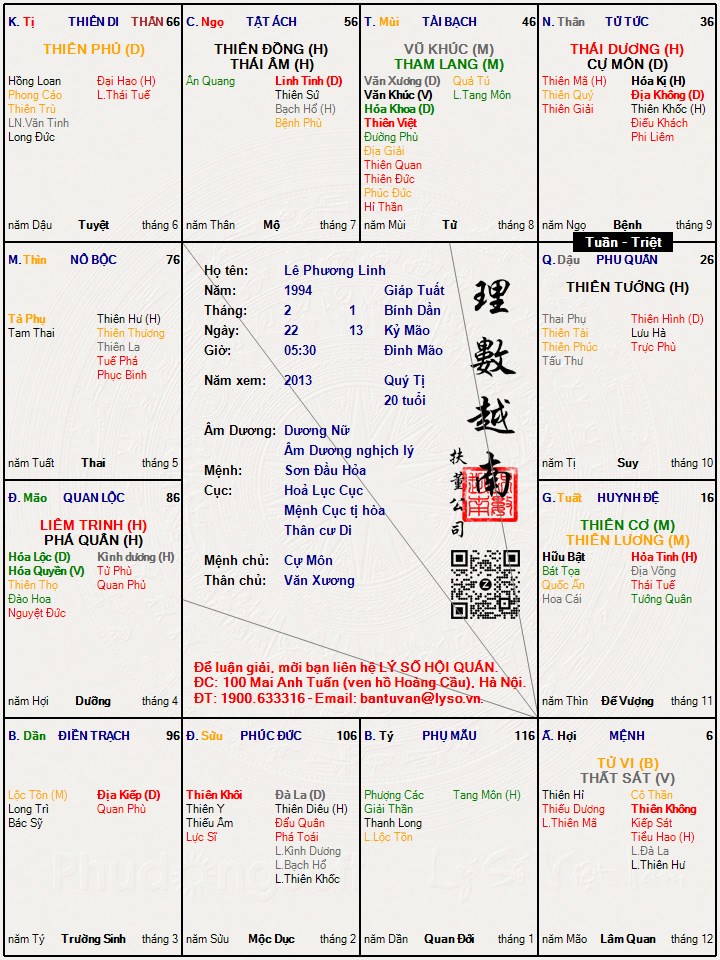 K. Tị THIÊN DI THÂN 66
THIÊN PHỦ (D)
Hồng Loan Đại Hao (H)
Phong Cáo L.Thái Tuế
Thiên Trù
LN.Văn Tinh
Long Đức
năm Dậu Tuyệt tháng 6
C. Ngọ TẬT ÁCH 56
THIÊN ĐỒNG (H)
THÁI ÂM (H)
Ân Quang Linh Tinh (D)
Thiên Sứ
Bạch Hổ (H)
Bệnh Phù
năm Thân Mộ tháng 7
T. Mùi TÀI BẠCH 46
VŨ KHÚC (M)
THAM LANG (M)
Văn Xương (D) Quả Tú
Văn Khúc (V) L.Tang Môn
Hóa Khoa (D)
Thiên Việt
Đường Phù
Địa Giải
Thiên Quan
Thiên Đức
Phúc Đức
Hỉ Thần
năm Mùi Tử tháng 8
N. Thân TỬ TỨC 36
THÁI DƯƠNG (H)
CỰ MÔN (D)
Thiên Mã (H) Hóa Kị (H)
Thiên Quý Địa Không (D)
Thiên Giải Thiên Khốc (H)
Điếu Khách
Phi Liêm
năm Ngọ Bệnh tháng 9
Tuần - Triệt
M. Thìn NÔ BỘC 76
Tả Phụ Thiên Hư (H)
Tam Thai Thiên Thương
Thiên La
Tuế Phá
Phục Binh
năm Tuất Thai tháng 5
Họ tên: Lê Phương Linh
Năm: 1994 Giáp Tuất
Tháng: 2 1 Bính Dần
Ngày: 22 13 Kỷ Mão
Giờ: 05:30 Đinh Mão
Năm xem: 2013 Quý Tị
20 tuổi
Âm Dương: Dương Nữ
Âm Dương nghịch lý
Mệnh: Sơn Đầu Hỏa
Cục: Hoả Lục Cục
Mệnh Cục tị hòa
Thân cư Di
Mệnh chủ: Cự Môn
Thân chủ: Văn Xương
理數越南
扶董公司
Để luận giải, mời bạn liên hệ LÝ SỐ HỘI QUÁN.
ĐC: 100 Mai Anh Tuấn (ven hồ Hoàng Cầu), Hà Nội.
ĐT: 1900.633316 - Email: bantuvan@lyso.vn.
Q. Dậu PHU QUÂN 26
THIÊN TƯỚNG (H)
Thai Phụ Thiên Hình (D)
Thiên Tài Lưu Hà
Thiên Phúc Trực Phù
Tấu Thư
năm Tị Suy tháng 10
Đ. Mão QUAN LỘC 86
LIÊM TRINH (H)
PHÁ QUÂN (H)
Hóa Lộc (D) Kình dương (H)
Hóa Quyền (V) Tử Phù
Thiên Thọ Quan Phủ
Đào Hoa
Nguyệt Đức
năm Hợi Dưỡng tháng 4
G. Tuất HUYNH ĐỆ 16
THIÊN CƠ (M)
THIÊN LƯƠNG (M)
Hữu Bật Hỏa Tinh (H)
Bát Tọa Địa Võng
Quốc Ấn Thái Tuế
Hoa Cái Tướng Quân
năm Thìn Đế Vượng tháng 11
B. Dần ĐIỀN TRẠCH 96
Lộc Tồn (M) Địa Kiếp (D)
Long Trì Quan Phù
Bác Sỹ
năm Tý Trường Sinh tháng 3
Đ. Sửu PHÚC ĐỨC 106
Thiên Khôi Đà La (D)
Thiên Y Thiên Diêu (H)
Thiếu Âm Đẩu Quân
Lực Sĩ Phá Toái
L.Kình Dương
L.Bạch Hổ
L.Thiên Khốc
năm Sửu Mộc Dục tháng 2
B. Tý PHỤ MẪU 116
Phượng Các Tang Môn (H)
Giải Thần
Thanh Long
L.Lộc Tồn
năm Dần Quan Đới tháng 1
Ấ. Hợi MỆNH 6
TỬ VI (B)
THẤT SÁT (V)
Thiên Hỉ Cô Thần
Thiếu Dương Thiên Không
L.Thiên Mã Kiếp Sát
Tiểu Hao (H)
L.Đà La
L.Thiên Hư
năm Mão Lâm Quan tháng 12